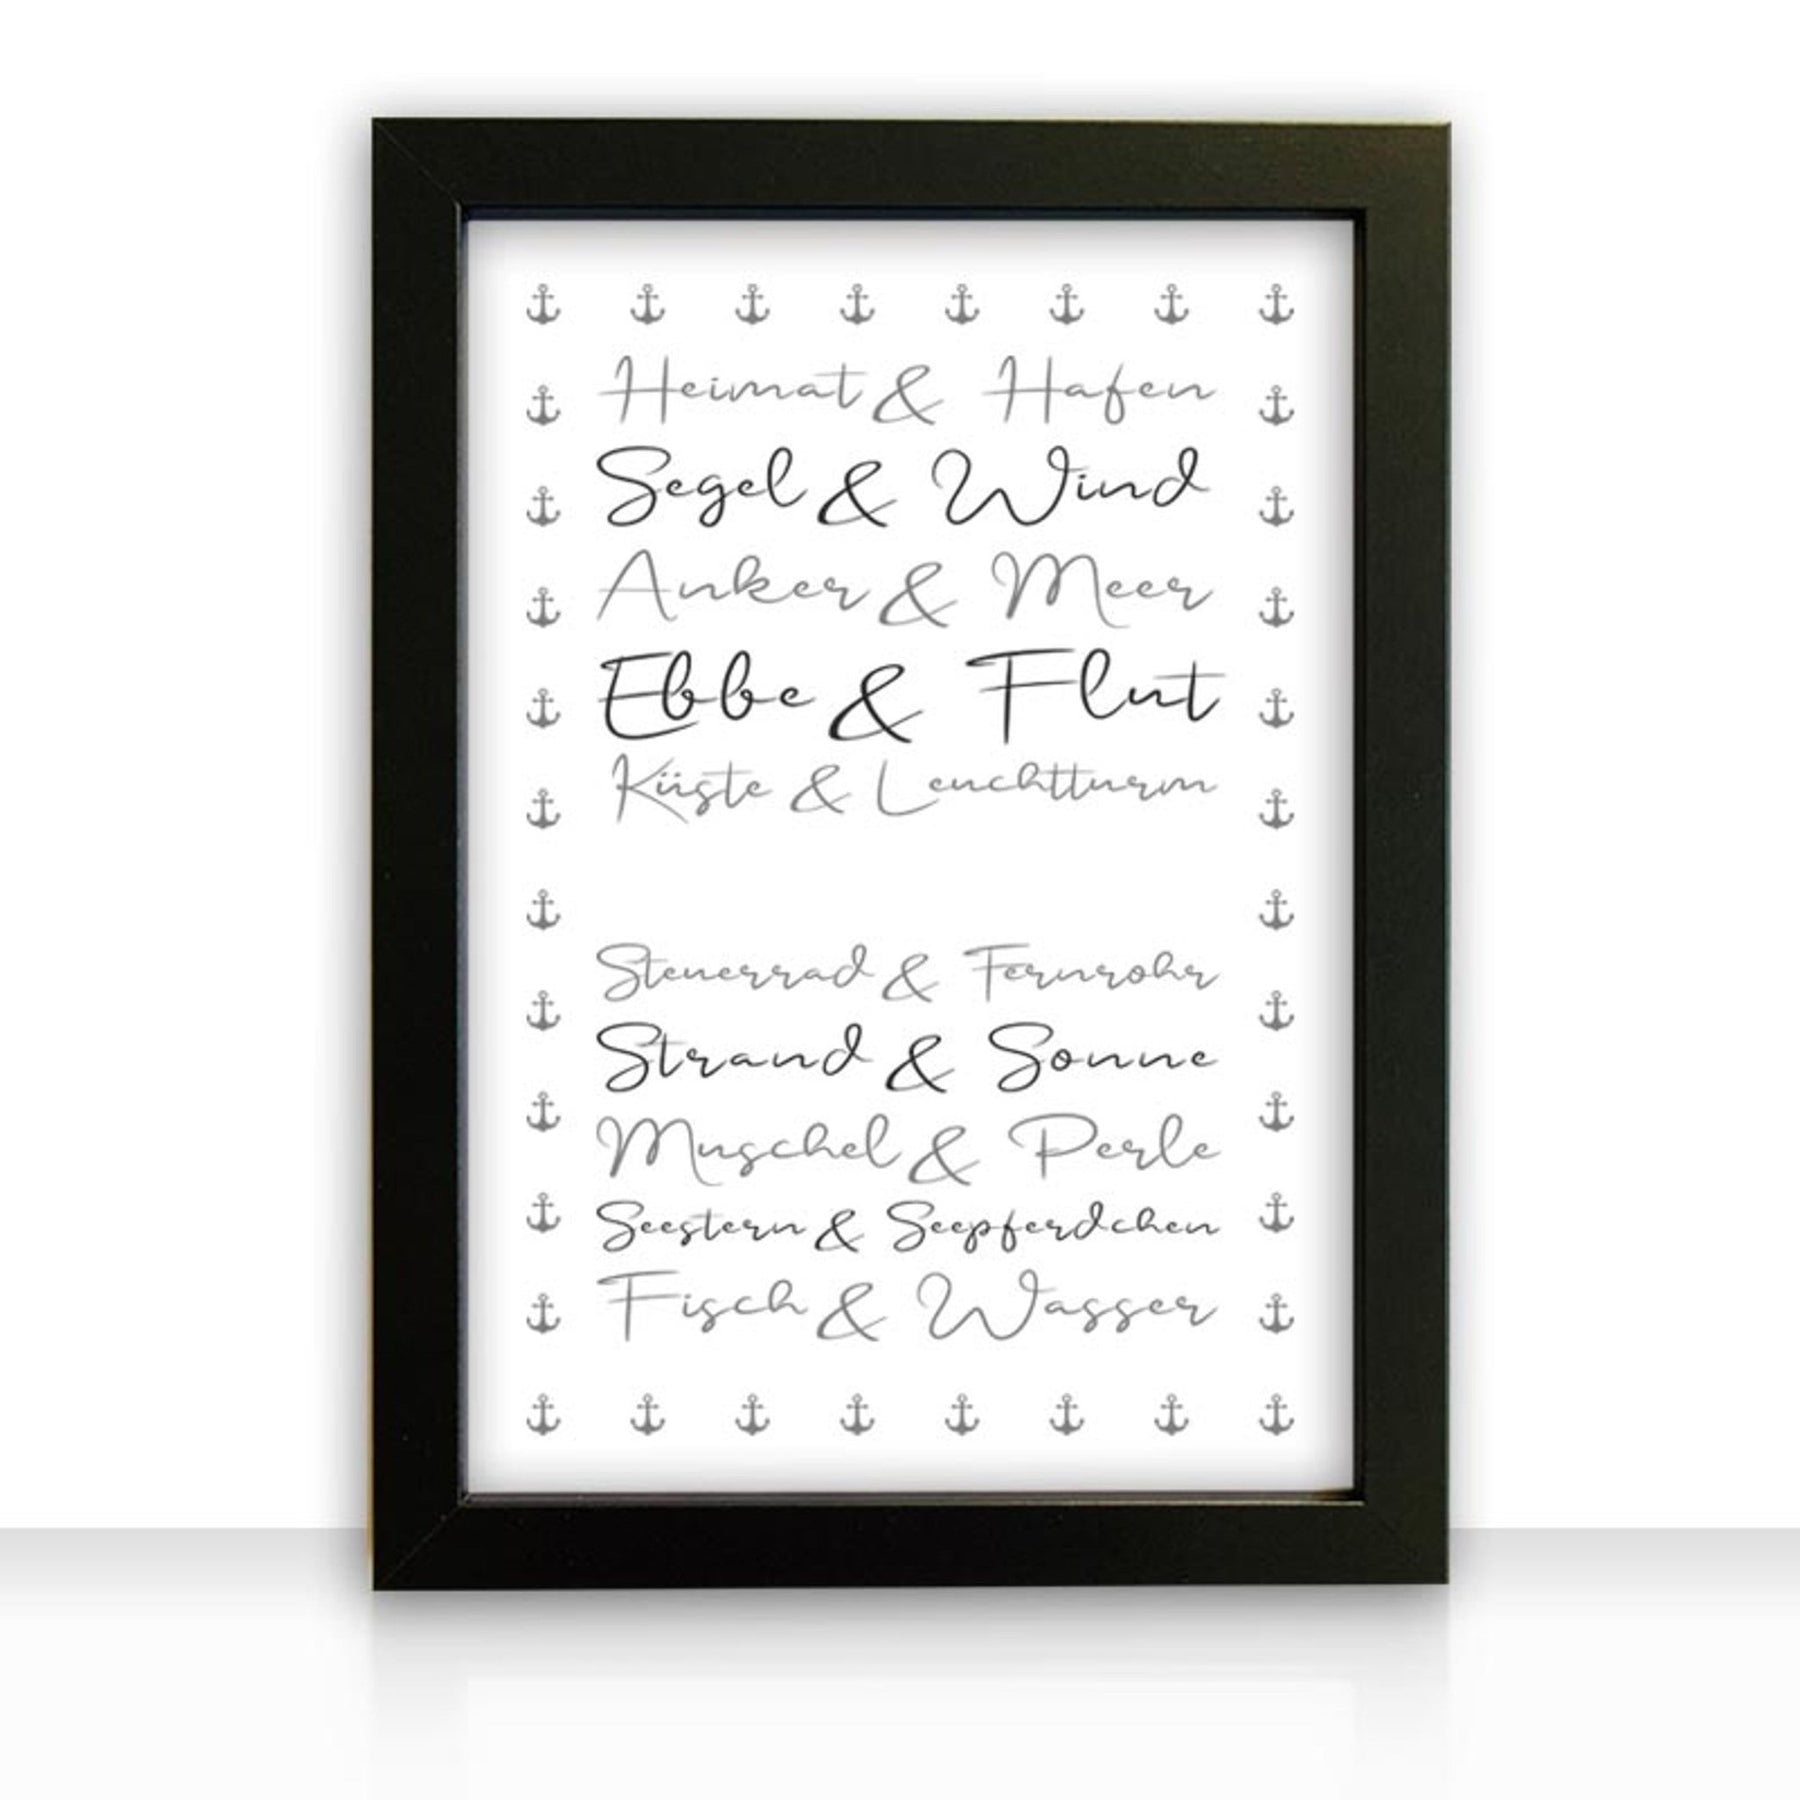 Heimat & Hafen
Segel & Wind
Anker & Meer
Ebbe & Flut
Küste & Leuchtturm
Steuerrad & Fernrohr
Strand & Sonne
Muschel & Perle
Seestern & Seepferdchen
Fisch & Wasser